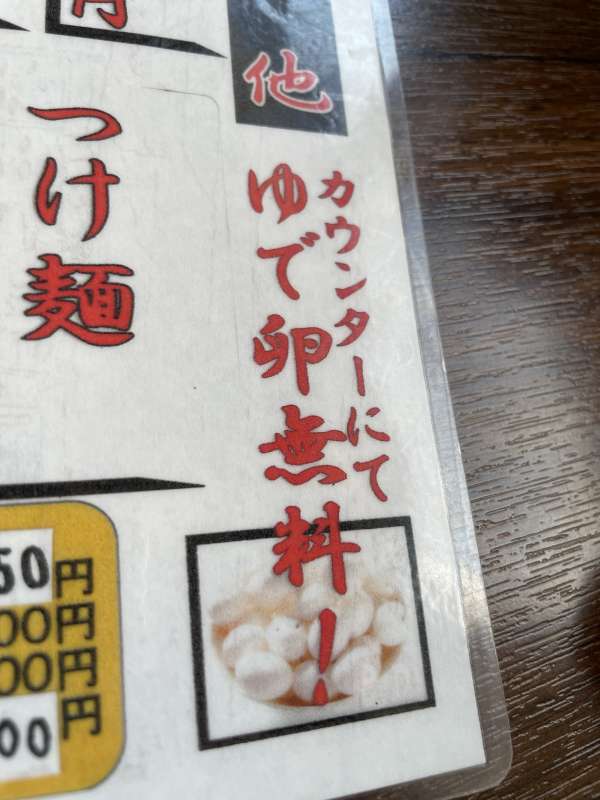 他
カウンターにて
ゆで卵無料！
つけ麺
50円
00円
00円
00円